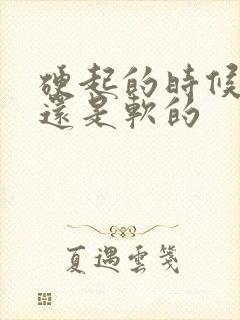 硬起的時候
還是軟的
夏遇雲箋